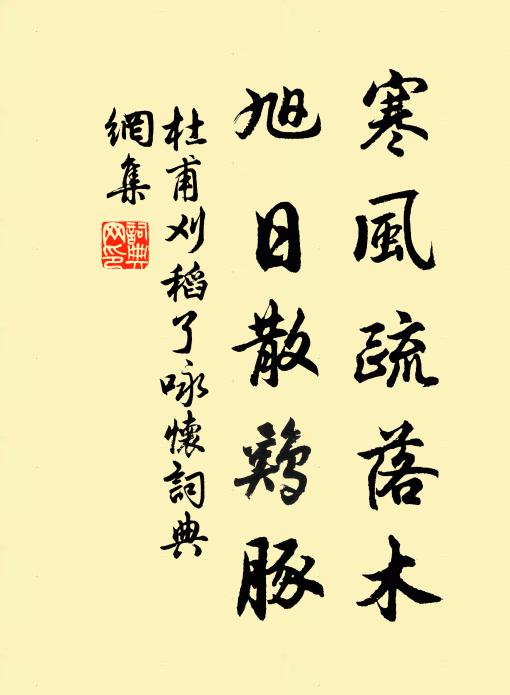 寒風疏落木
旭日散鷄豚
杜甫刈稻了咏懷詞典
網集
詞典
网印